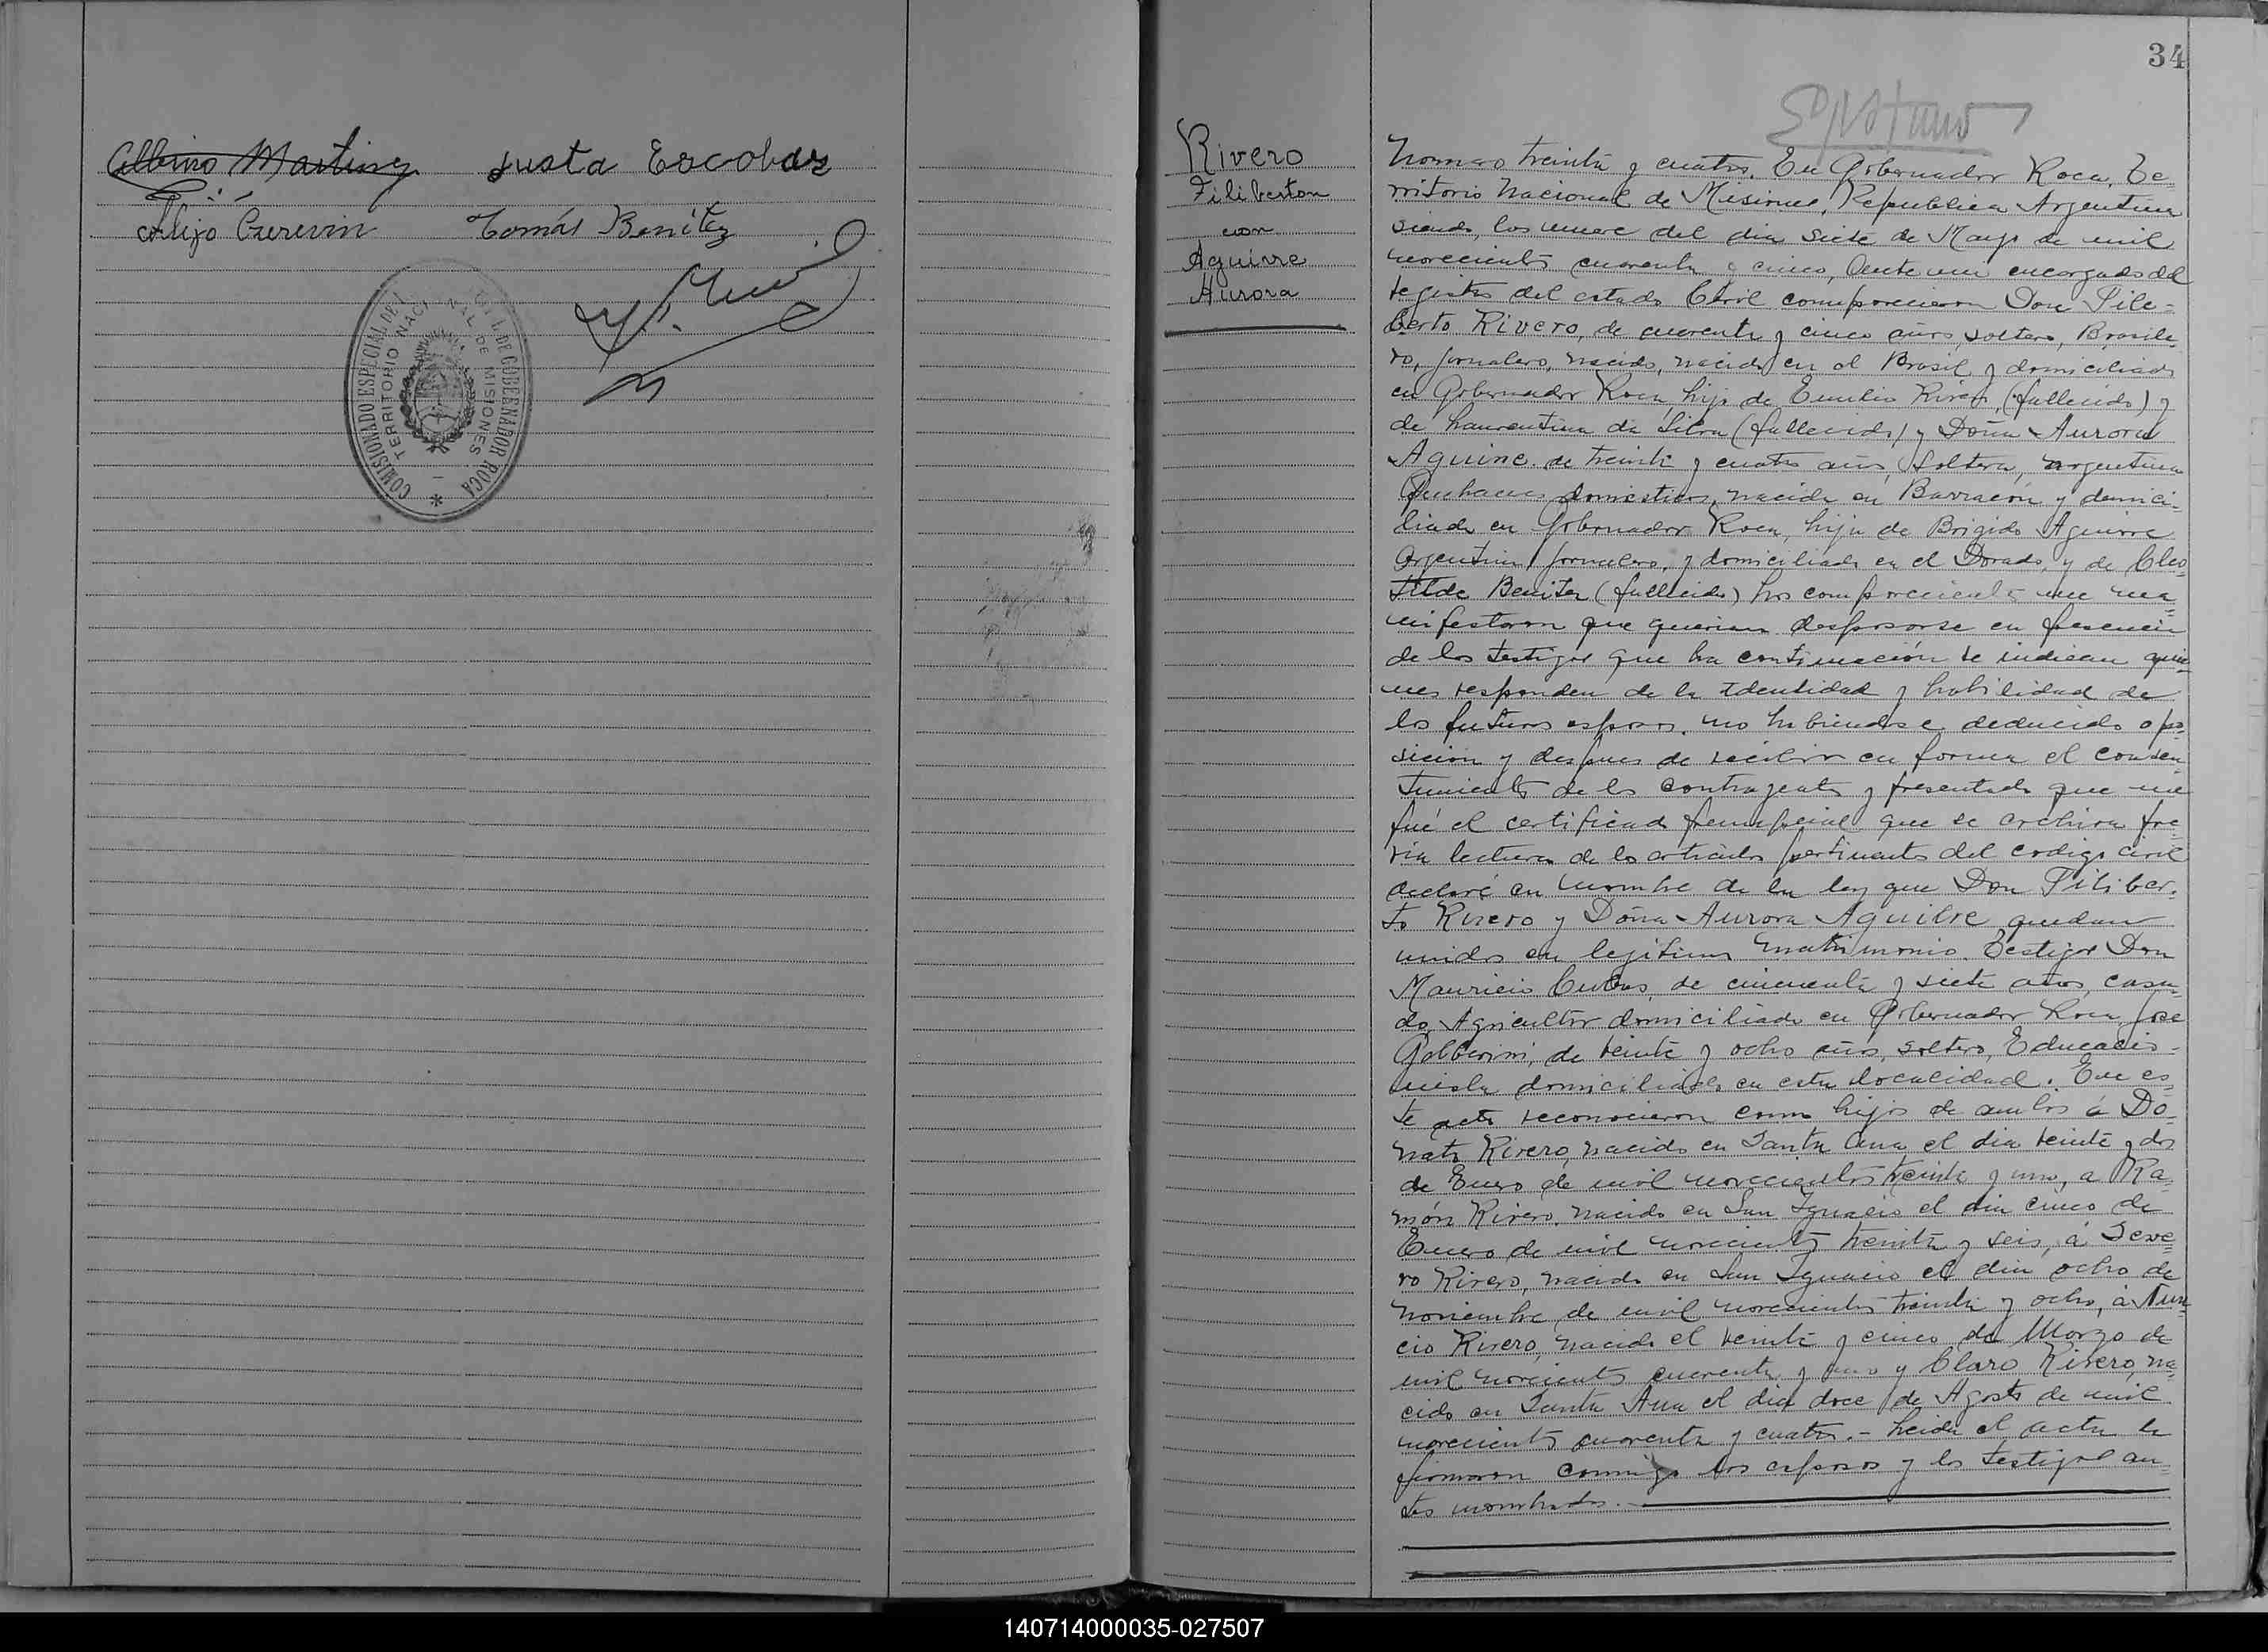 Albino Martinez Justa Escobar
Tomás Benítez
COMISIONADO ESPECIAL DE GOBERNADOR ROCA
TERRITORIO NACIONAL DE MISIONES
34
Rivero
Filiberton
con
Aguirre
Aurora
Número treinta y cuatro. En Gobernador Roca, Te
rritorio Nacional de Misiones, Republica Argentina
siendo, las nueve del dia siete de Mayo de mil
novecientos cuarenta y cinco, Ante mi encargado del
registro del estado Civil comparecieron Don Fili-
berto Rivero, de cuarenta y cinco años, soltero, Brasile
ro, jornalero, nacido, nacido en el Brasil y domiciliado
en Gobernador Roca, hijo de Emilio Rivero, (fallecido) y
de Laurentina da Silva (fallecida) y Doña Aurora
Aguirre de treinta y cuatro años, soltera, argentina
Quehaceres domesticos, nacida en Barracón y domici-
liada en Gobernador Roca, hija de Brigido Aguirre
argentino, jornalero, y domiciliado en el Dorado, y de Cleo
tilde Benitez (fallecida) los comparecientes me ma
nifestaron que querian desposarse en presencia
de los testigos que ha continuación se indican quie
nes responden de la Identidad y habilidad de
los futuros esposos. no habiendose deducido opo
sición y despues de recibir en forma el consen
timiento de los contrayentes y presentado que me
fué el certificado prenupcial que se archiva pre
via lectura de los articulos pertinentes del codigo civil
declaré en nombre de la ley que Don Filiber-
to Rivero y Doña Aurora Aguirre quedan
unidos en legitimo matrimonio. Testigos Don
Mauricio Cubas, de cincuenta y siete años, casa
do, Agricultor domiciliado en Gobernador Roca, Jose
de veinte y ocho años, soltero, Educacio-
nista domiciliado en esta localidad. En es
te acto reconocieron como hijos de ambos á Do
nato Rivero, nacido en Santa Ana el dia veinte y dos
de Enero de mil novecientos treinta y uno, a Ra
món Rivero, nacido en San Ignacio el dia cinco de
Enero de mil novecientos treinta y seis, á Seve
ro Rivero, nacido en San Ignacio el dia ocho de
noviembre de mil novecientos treinta y ocho, á Nun
cio Rivero, nacido el veinte y cinco de Marzo de
mil novecientos cuarenta y uno y Claro Rivero, na
cido en Santa Ana el dia doce de Agosto de mil
novecientos cuarenta y cuatro. - Leida el acta la
firmaron conmigo los esposos y los testigos an
tes nombrados.
140714000035-027507